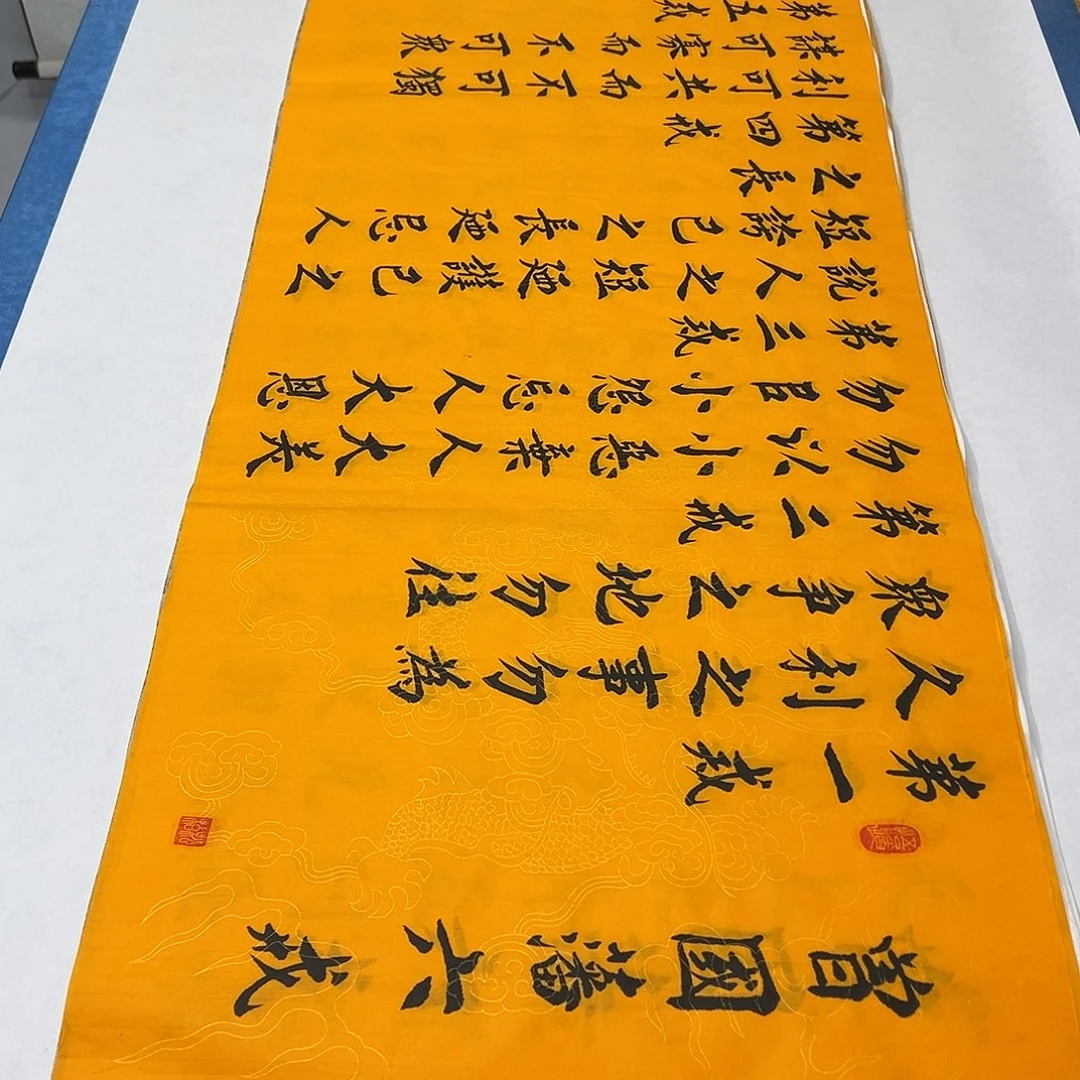 曾國藩六戒
第一戒
久利之事勿為
衆争之地勿往
第二戒
勿以小惡棄人大美
勿㠯小怨忘人大恩
第三戒
說人之短廼護己之
短誇己之長廼忌人
之長
第四戒
利可共而不可獨
謀可寡而不可衆
第五戒